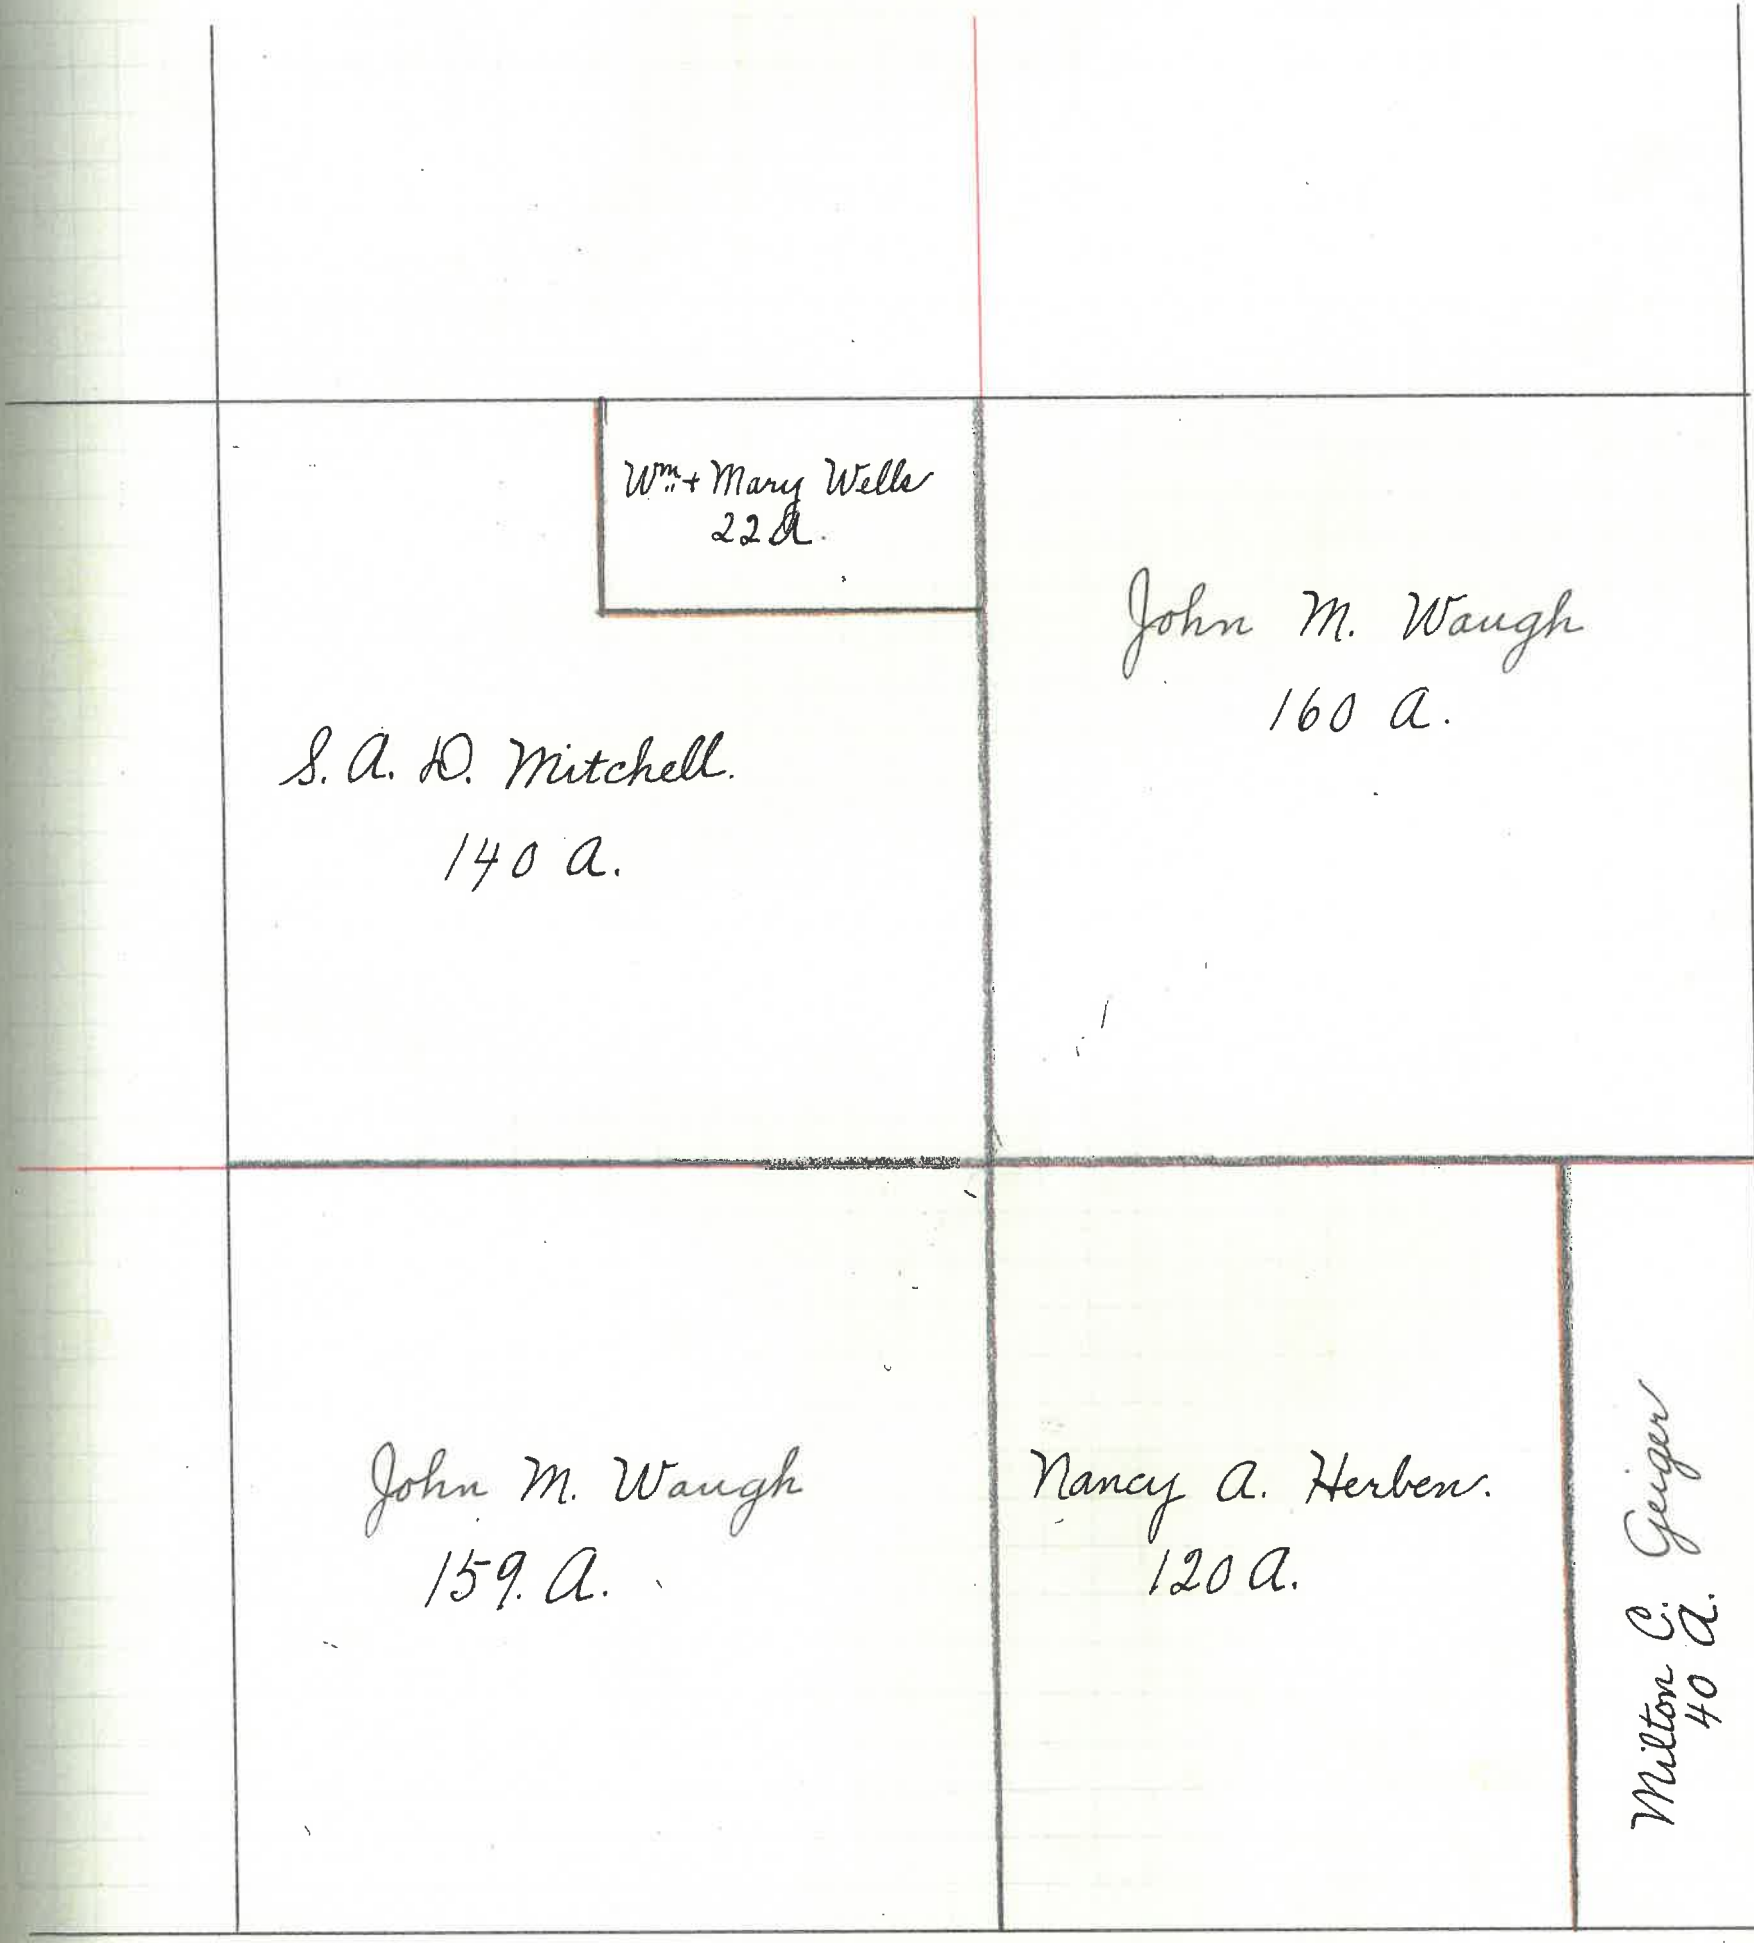 Wm + Mary Wells
22 A.
John M. Waugh
160 A.
S. A. D. Mitchell.
140 A.
John M. Waugh
159. A.
Nancy A. Herben.
120 A.
Milton C. Geiger
40 A.